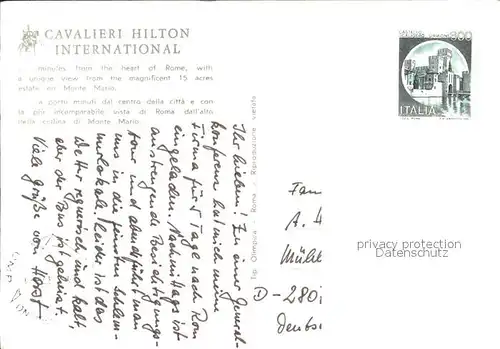 CAVALIERI HILTON
INTERNATIONAL
minutes from the heart of Rome, with
a unique view from the magnificent 15 acres
estate on Monte Mario.
a pochi minuti dal centro della città e con
la più incomparabile vista di Roma dall'alto
della collina di Monte Mario.
Ihr Lieben! Zu einer General-
konferenz hat mich meine
Firma für Tage nach Rom
eingeladen. Nachmittags ist
anstrengende Besichtigungs-
tour und abends führt man
uns in die feinsten Schlem-
merlokale. Leider ist das
Wetter regnerisch und kalt,
aber der Bus ist geheizt.
Viele Grüße von Horst
Tip. Olimpica - Roma - Riproduzione vietata
800
ITALIA
Fam
A. H
Mühl
D-280
Deutsc
privacy protection
Datenschutz